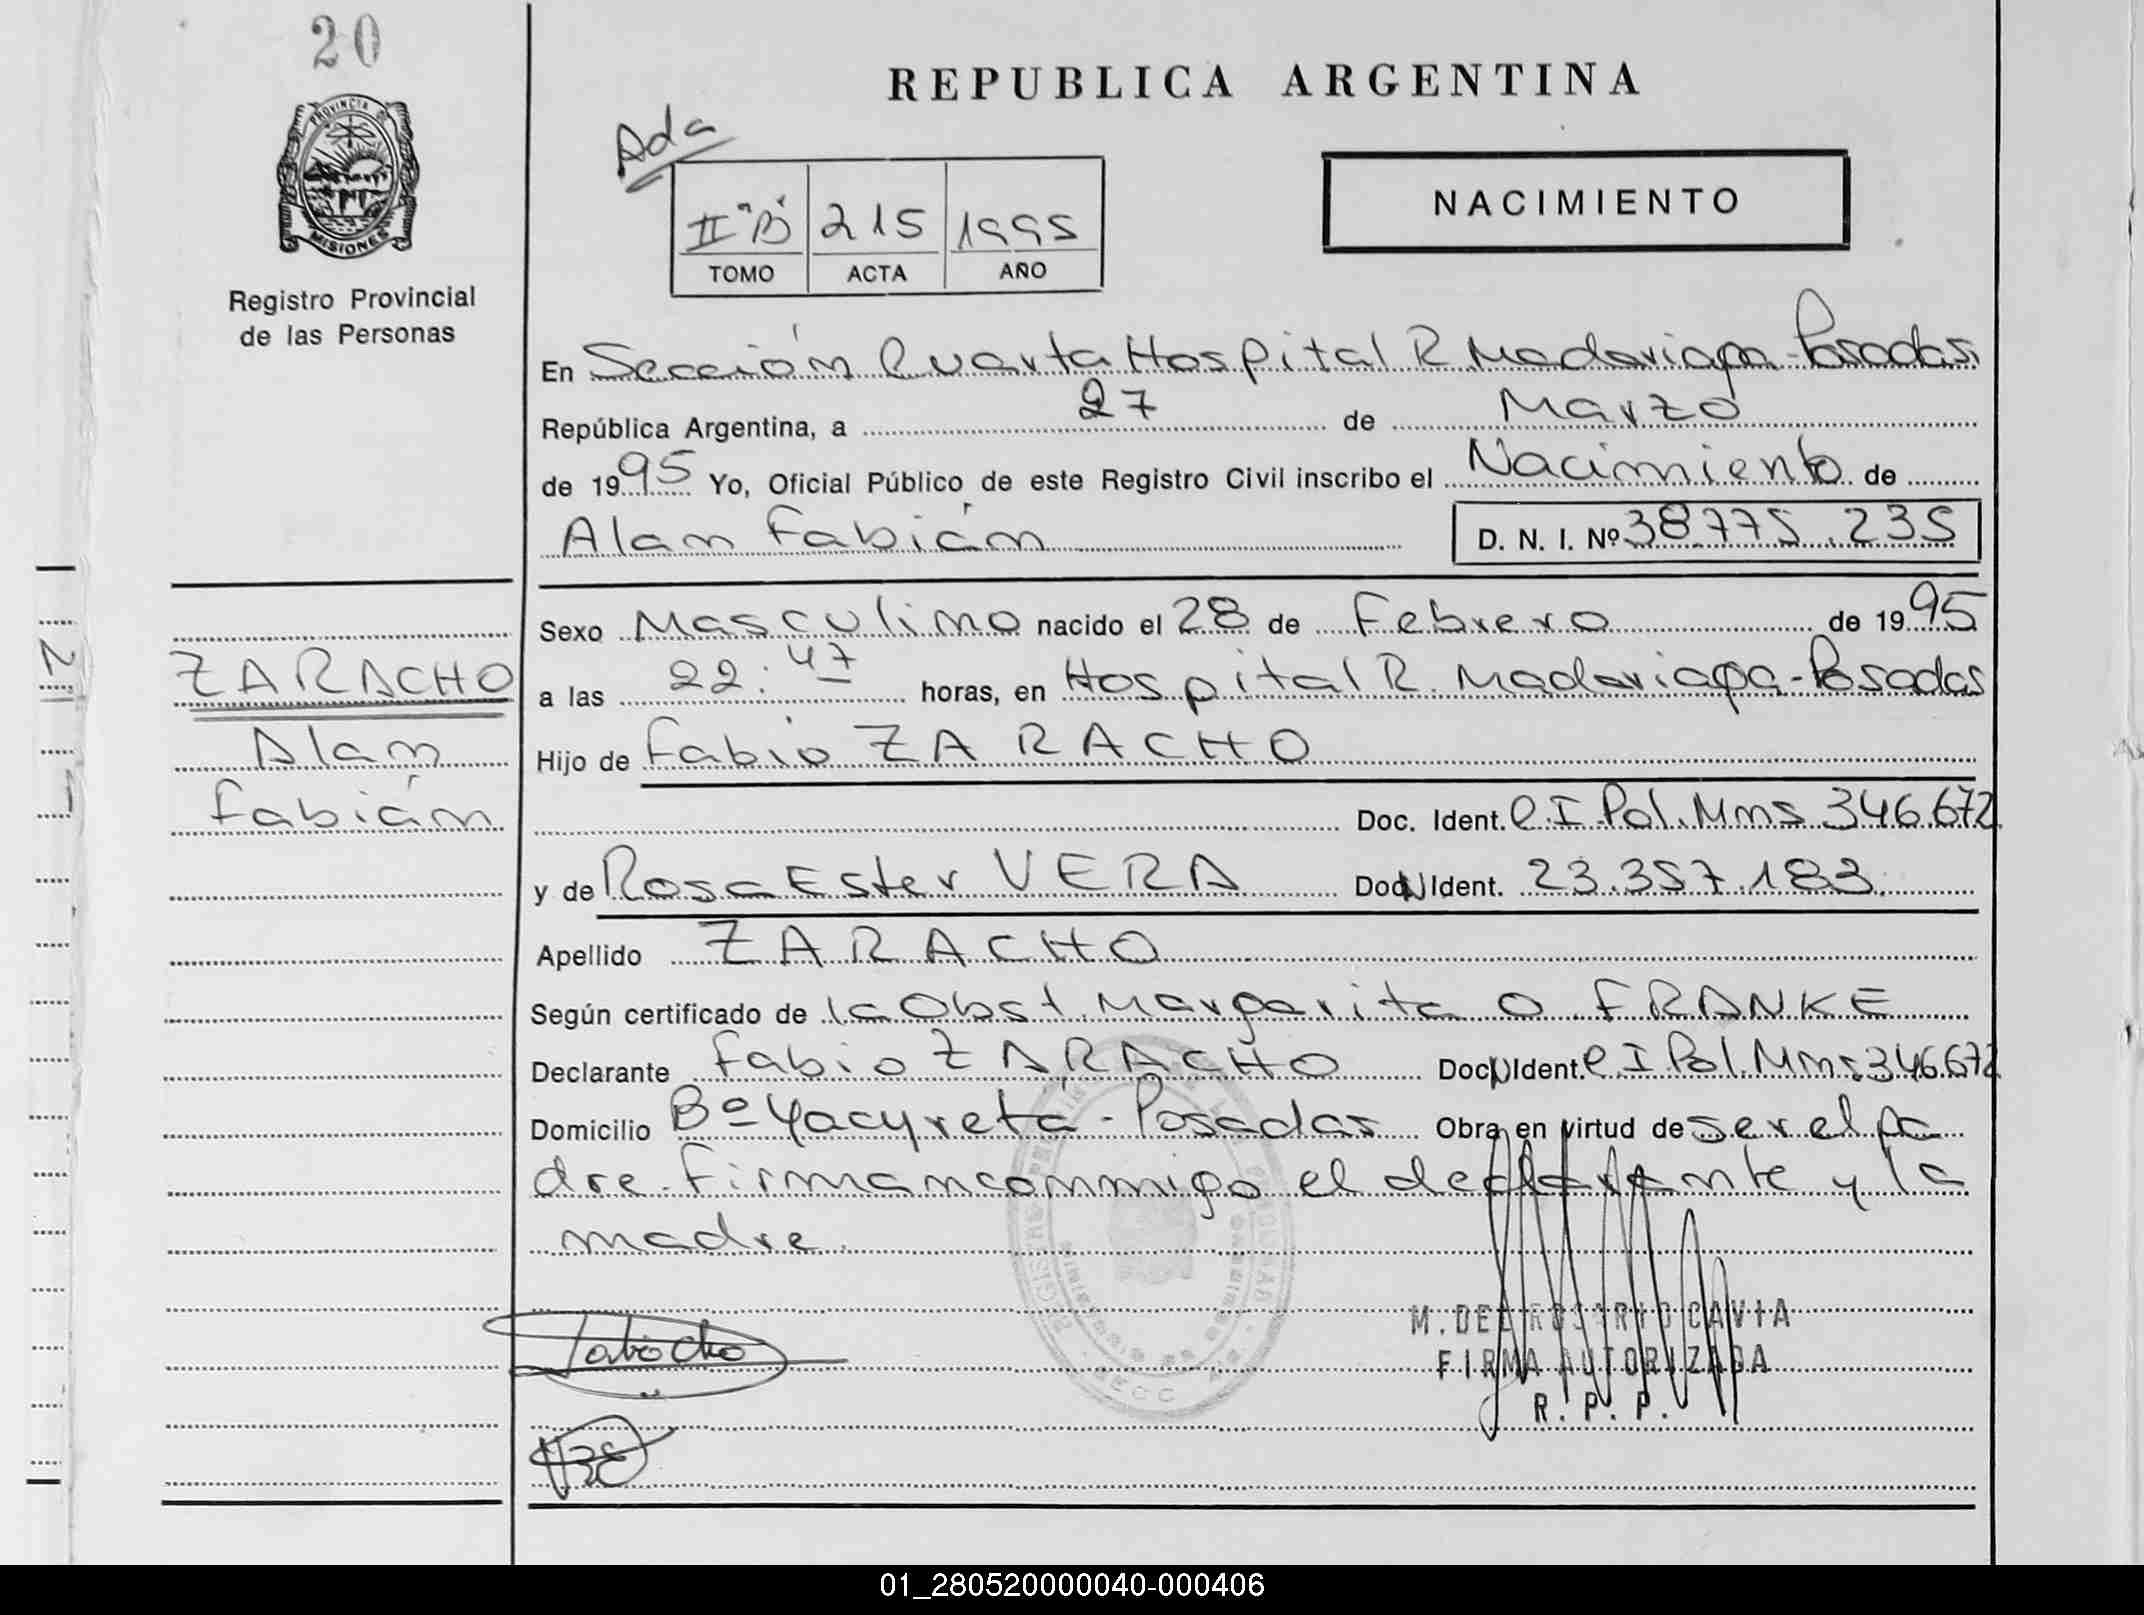 20
REPUBLICA ARGENTINA
PROVINCIA DE
MISIONES
Registro Provincial
de las Personas
Ada
II "B" 215 1995
TOMO ACTA AÑO
NACIMIENTO
En Sección Cuarta Hospital R Madariaga - Posadas,
República Argentina, a 27 de Marzo
de 1995 Yo, Oficial Público de este Registro Civil inscribo el Nacimiento de
Alam Fabián D. N. I. Nº 38.775.235
Sexo Masculino nacido el 28 de Febrero de 1995
a las 22:47 horas, en Hospital R. Madariaga - Posadas
Hijo de Fabio ZARACHO
Doc. Ident. C.I. Pol. Mnes 346.672
y de Rosa Ester VERA Doc N Ident. 23.357.183
Apellido ZARACHO
Según certificado de la Obst. Margarita O. FRANKE
Declarante Fabio ZARACHO Doc N Ident. C I Pol. Mnes. 346.672
Domicilio Bº Yacyretá - Posadas Obra en virtud de ser el pa
dre. Firman conmigo el declarante y la
madre.
ZARACHO
Alam
Fabián
M. DEL ROSARIO CAVIA
FIRMA AUTORIZADA
R. P. P.
01_280520000040-000406